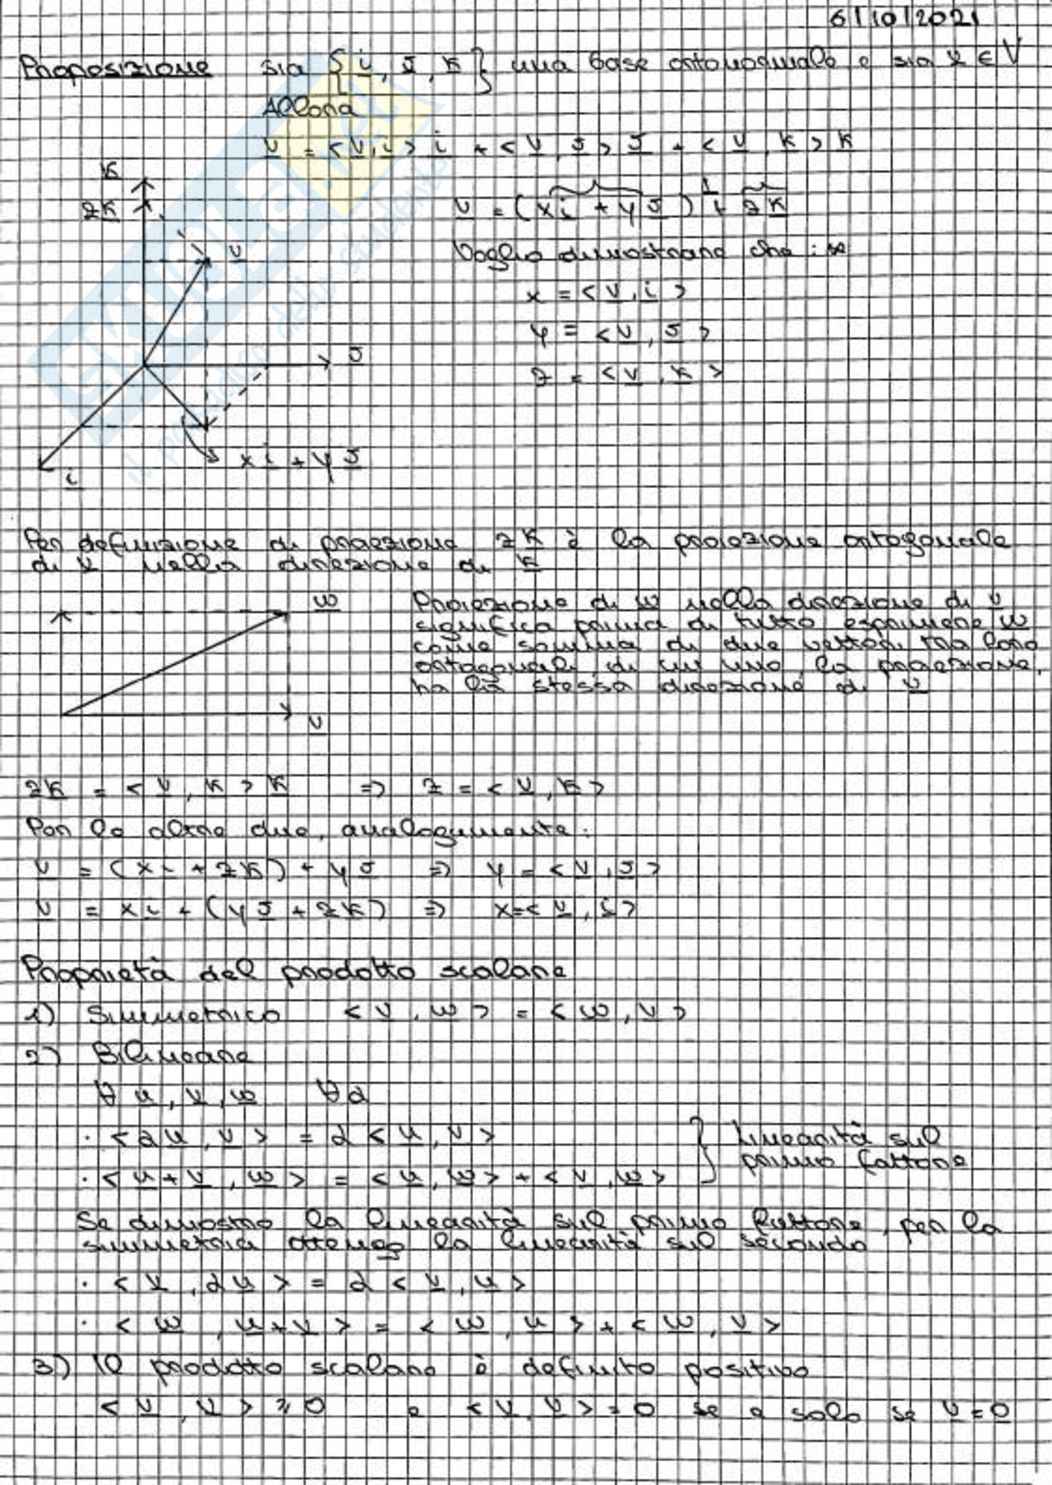 6/10/2021
Proposizione sia {i, j, k} una base ortonormale e sia v ∈ V
Allora
v = <v,i> i + <v,j> j + <v,k> k
k
zk
v = (xi + yj) + zk
v
Voglio dimostrare che :
x = <v,i>
y = <v,j>
j
z = <v,k>
xi + yj
i
Per definizione di proiezione zk è la proiezione ortogonale
di v nella direzione di k
w
Proiezione di w nella direzione di v
significa prima di tutto esprimere w
come somma di due vettori tra loro
ortogonali di cui uno, la proiezione,
ha la stessa direzione di v
v
zk = <v,k> k => z = <v,k>
Per le altre due, analogamente:
v = (xi + zk) + yj => y = <v,j>
v = xi + (yj + zk) => x = <v,i>
Proprietà del prodotto scalare
1) Simmetrico <v,w> = <w,v>
2) Bilineare
∀ u, v, w ∀α
· <αu,v> = α <u,v>
· <u+v,w> = <u,w> + <v,w>
} Linearità sul
primo fattore
Se dimostro la linearità sul primo fattore, per la
simmetria ottengo la linearità sul secondo
· <v,αu> = α <v,u>
· <w,u+v> = <w,u> + <w,v>
3) Il prodotto scalare è definito positivo
<v,v> ≥ 0 e <v,v> = 0 se e solo se v = 0